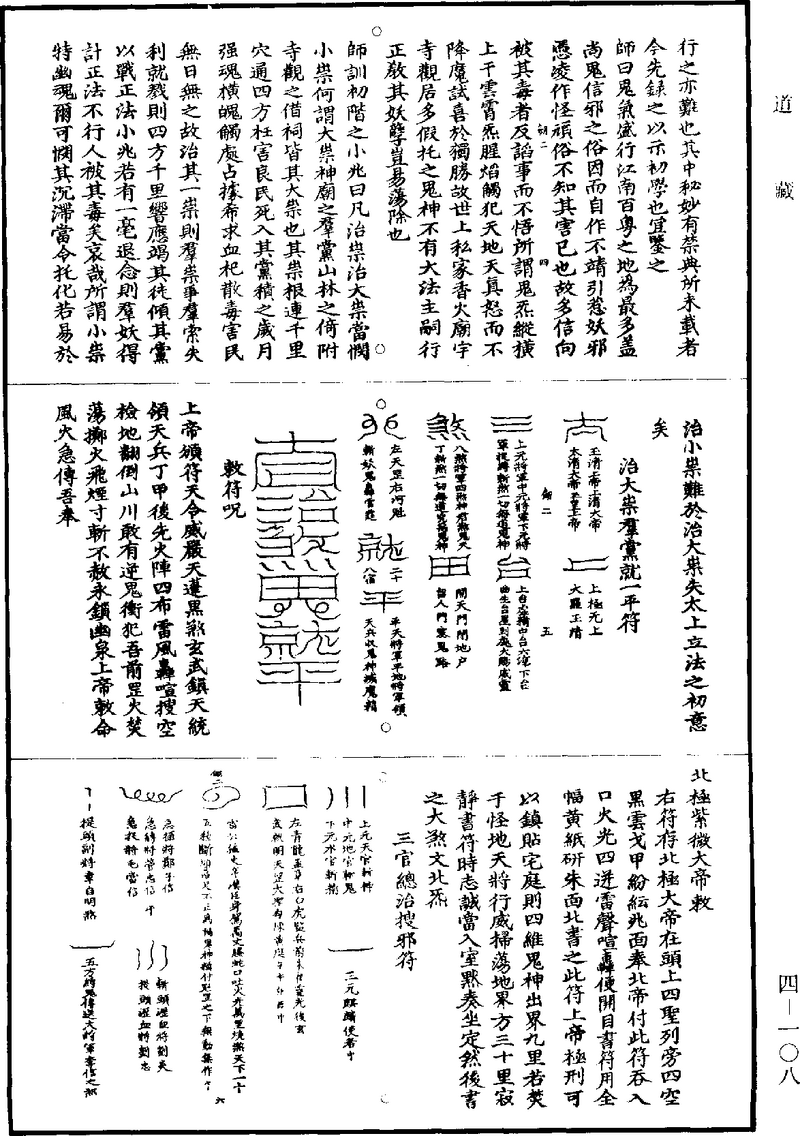 道藏
四—一〇八
行之亦難也其中秘妙有禁典所未載者
今先録之以示初學也宜鑒之
師曰鬼氣盛行江南百粤之地為最多蓋
尚鬼信邪之俗因而自作不靖引惹妖邪
憑凌作怪頑俗不知其害已也故多信向
被其毒者反諂事而不悟所謂鬼炁縱横
上干雲霄炁腥焰觸犯天地天真怒而不
降魔試喜於獨勝故世上私家香火廟宇
寺觀居多假托之鬼神不有大法主嗣行
正教其妖孽豈易蕩除也
師訓初階之小兆曰凡治祟治大祟當憫
小祟何謂大祟神廟之羣黨山林之倚附
寺觀之借祠皆其大祟也其祟根連千里
穴通四方枉害良民死入其黨積之歲月
强魂横魄觸處占據希求血祀散毒害民
無日無之故治其一祟則羣祟爭羣索失
利就戮則四方千里響應竭其徒傾其黨
以戰正法小兆若有一毫退念則羣妖得
計正法不行人被其毒矣哀哉所謂小祟
特幽魂爾可憫其沉滯當令托化若易於
治小祟難於治大祟失太上立法之初意
矣
治大祟羣黨就一平符
玉清上帝上清大帝
太清大帝
上極无上
大羅玉清
上元將軍中元將軍下元將
上台虚精中台六淳下台
曲生
開天門閉地户
留人門塞鬼路
左天罡右河魁
斬妖鬼轟雷霆
二十
八宿
平天將軍平地將軍領
天兵收鬼神滅魔精
敕符呪
上帝頒符天令威嚴天蓬黑煞玄武鎮天統
領天兵丁甲後先火陣四布雷風轟喧搜空
檢地翻倒山川敢有逆鬼衝犯吾前罡火焚
蕩擲火飛煙寸斬不赦永鎖幽泉上帝敕命
風火急傳吾奉
北極紫微大帝敕
右符存北極大帝在頭上四聖列旁四空
黑雲戈甲紛紜兆面奉北帝付此符吞入
口火光四迸雷聲喧轟轉便開目書符用全
幅黄紙研朱面北書之此符上帝極刑可
以鎮貼宅庭則四維鬼神出界九里若焚
于怪地天將行威掃蕩地界方三十里寂
靜書符時志誠當入室默奏坐定然後書
之大煞文北炁
三官總治搜邪符
上元天官斬精
中元地官
下元水官斬
三元騏驎使者
五方